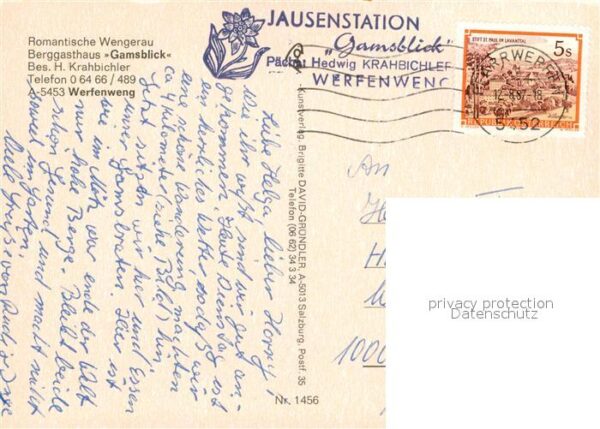 Romantische Wengerau
Berggasthaus »Gamsblick«
Bes. H. Krahbichler
Telefon 0 64 66 / 489
A-5453 Werfenweng
JAUSENSTATION
„Gamsblick"
Pächt. Hedwig KRAHBICHLER
WERFENWENG
STIFT ST. PAUL IM LAVANTTAL
5s
REPUBLIK ÖSTERREICH
5452
Kunstverlag Brigitte DAVID-GRÜNDLER, A-5013 Salzburg, Postf. 35
Telefon (06 62) 34 3 34
Nr. 1456
Liebe Helga, lieber Horry!
Wie ihr wißt sind wir gut an-
gekommen. Heut Dienstag ist
ein herrliches Wetter sodaß wir
eine kleine Wanderung machten
ca 4 Kilometer (siehe Bild) hin
Jetzt sitzen wir hier und Essen
einen Gamsbraten. Hier ist
wie im Mölltal ende der Welt
nur hohe Berge. Bleibt beide
schön Gesund und macht nicht
soviel im Garten.
Viele Grüße von Rudi + Inge
An
1000
privacy protection
Datenschutz